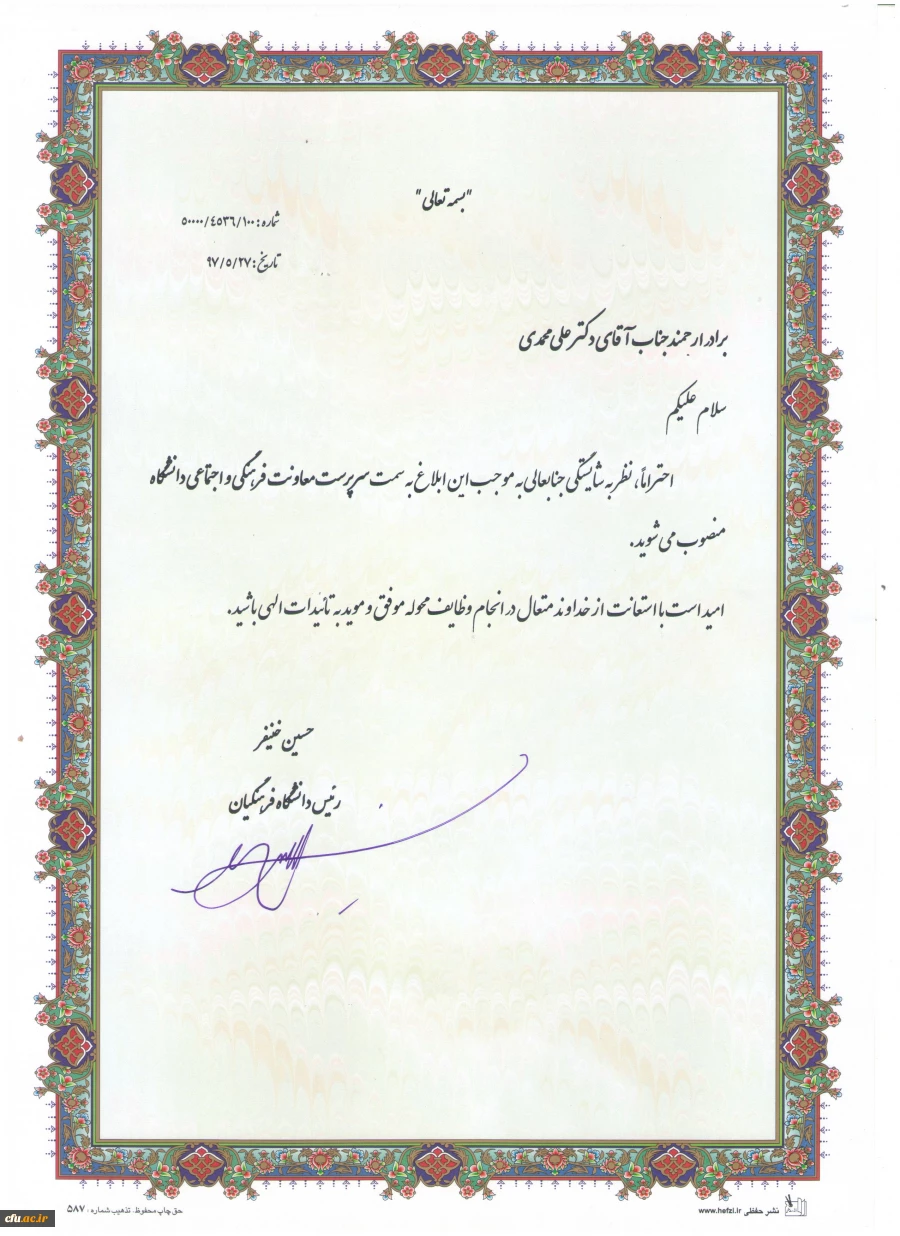 "بسمه تعالی"
شماره: ۵۰۰۰۰/٤٥٣٦/۱۰۰
تاریخ: ۹۷/۵/۲۷
برادر ارجمند جناب آقای دکتر علی محمدی
سلام علیکم
احتراماً، نظر به شایستگی جنابعالی به موجب این ابلاغ به سمت سرپرست معاونت فرهنگی و اجتماعی دانشگاه
منصوب می شوید.
امید است با استعانت از خداوند متعال در انجام وظایف محوله موفق و موید به تائیدات الهی باشید.
حسین خنیفر
رئیس دانشگاه فرهنگیان
نشر حفظی www.hefzi.ir
حق چاپ محفوظ. تذهیب شماره: ۵۸۷
cfu.ac.ir